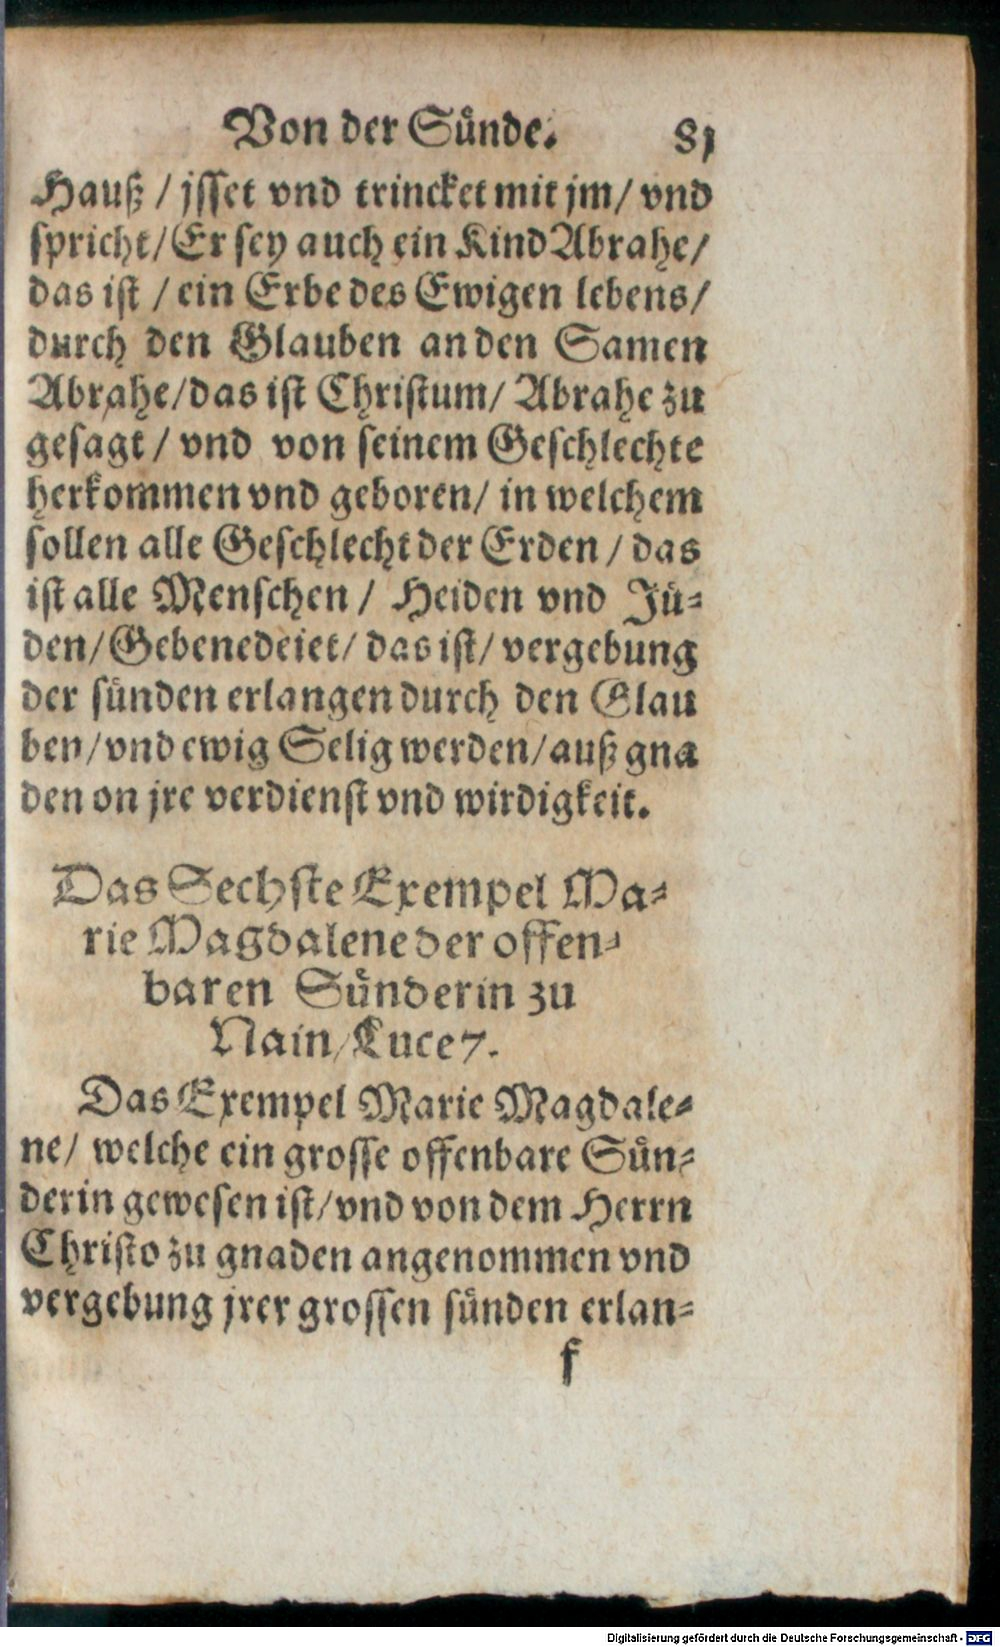 Von der Sünde. 81
Hauß / jsset vnd trincket mit jm / vnd
spricht / Er sey auch ein Kind Abrahe /
das ist / ein Erbe des Ewigen lebens /
durch den Glauben an den Samen
Abrahe / das ist Christum / Abrahe zu
gesagt / vnd von seinem Geschlechte
herkommen vnd geboren / in welchem
sollen alle Geschlecht der Erden / das
ist alle Menschen / Heiden vnd Jü-
den / Gebenedeiet / das ist / vergebung
der sünden erlangen durch den Glau
ben / vnd ewig Selig werden / auß gna
den on jre verdienst vnd wirdigkeit.
Das Sechste Exempel Ma-
rie Magdalene der offen-
baren Sünderin zu
Nain / Luce 7.
Das Exempel Marie Magdale-
ne / welche ein grosse offenbare Sün-
derin gewesen ist / vnd von dem Herrn
Christo zu gnaden angenommen vnd
vergebung jrer grossen sünden erlan-
f
Digitalisierung gefördert durch die Deutsche Forschungsgemeinschaft - DFG